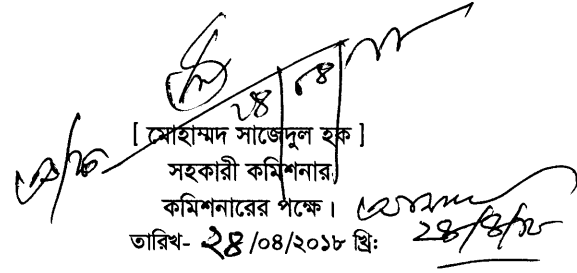 ২৪ ০৪
[ মোহাম্মদ সাজেদুল হক ]
সহকারী কমিশনার
কমিশনারের পক্ষে।
তারিখ- ২৪ /০৪/২০১৮ খ্রি:
২৪/৪/১৮